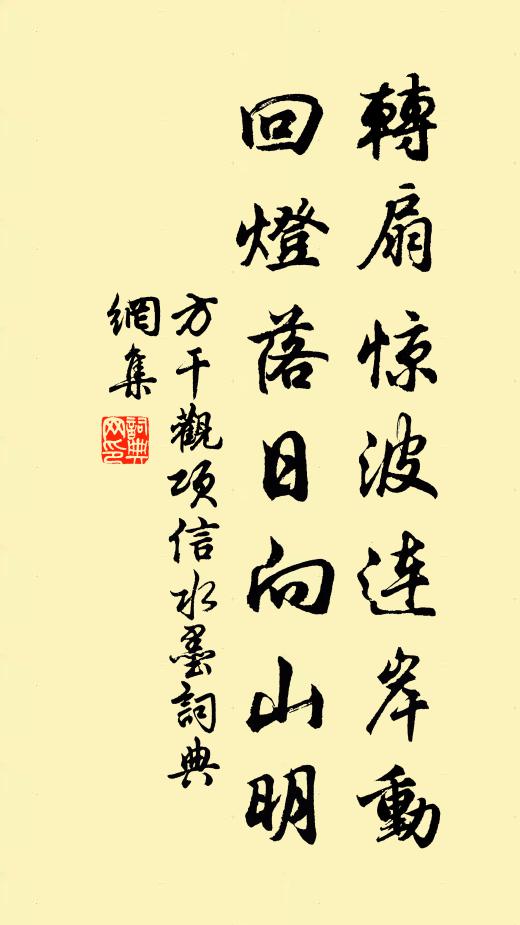 轉扇惊波连岸動
回燈落日向山明
方干觀项信水墨詞典
網集
詞典
网印